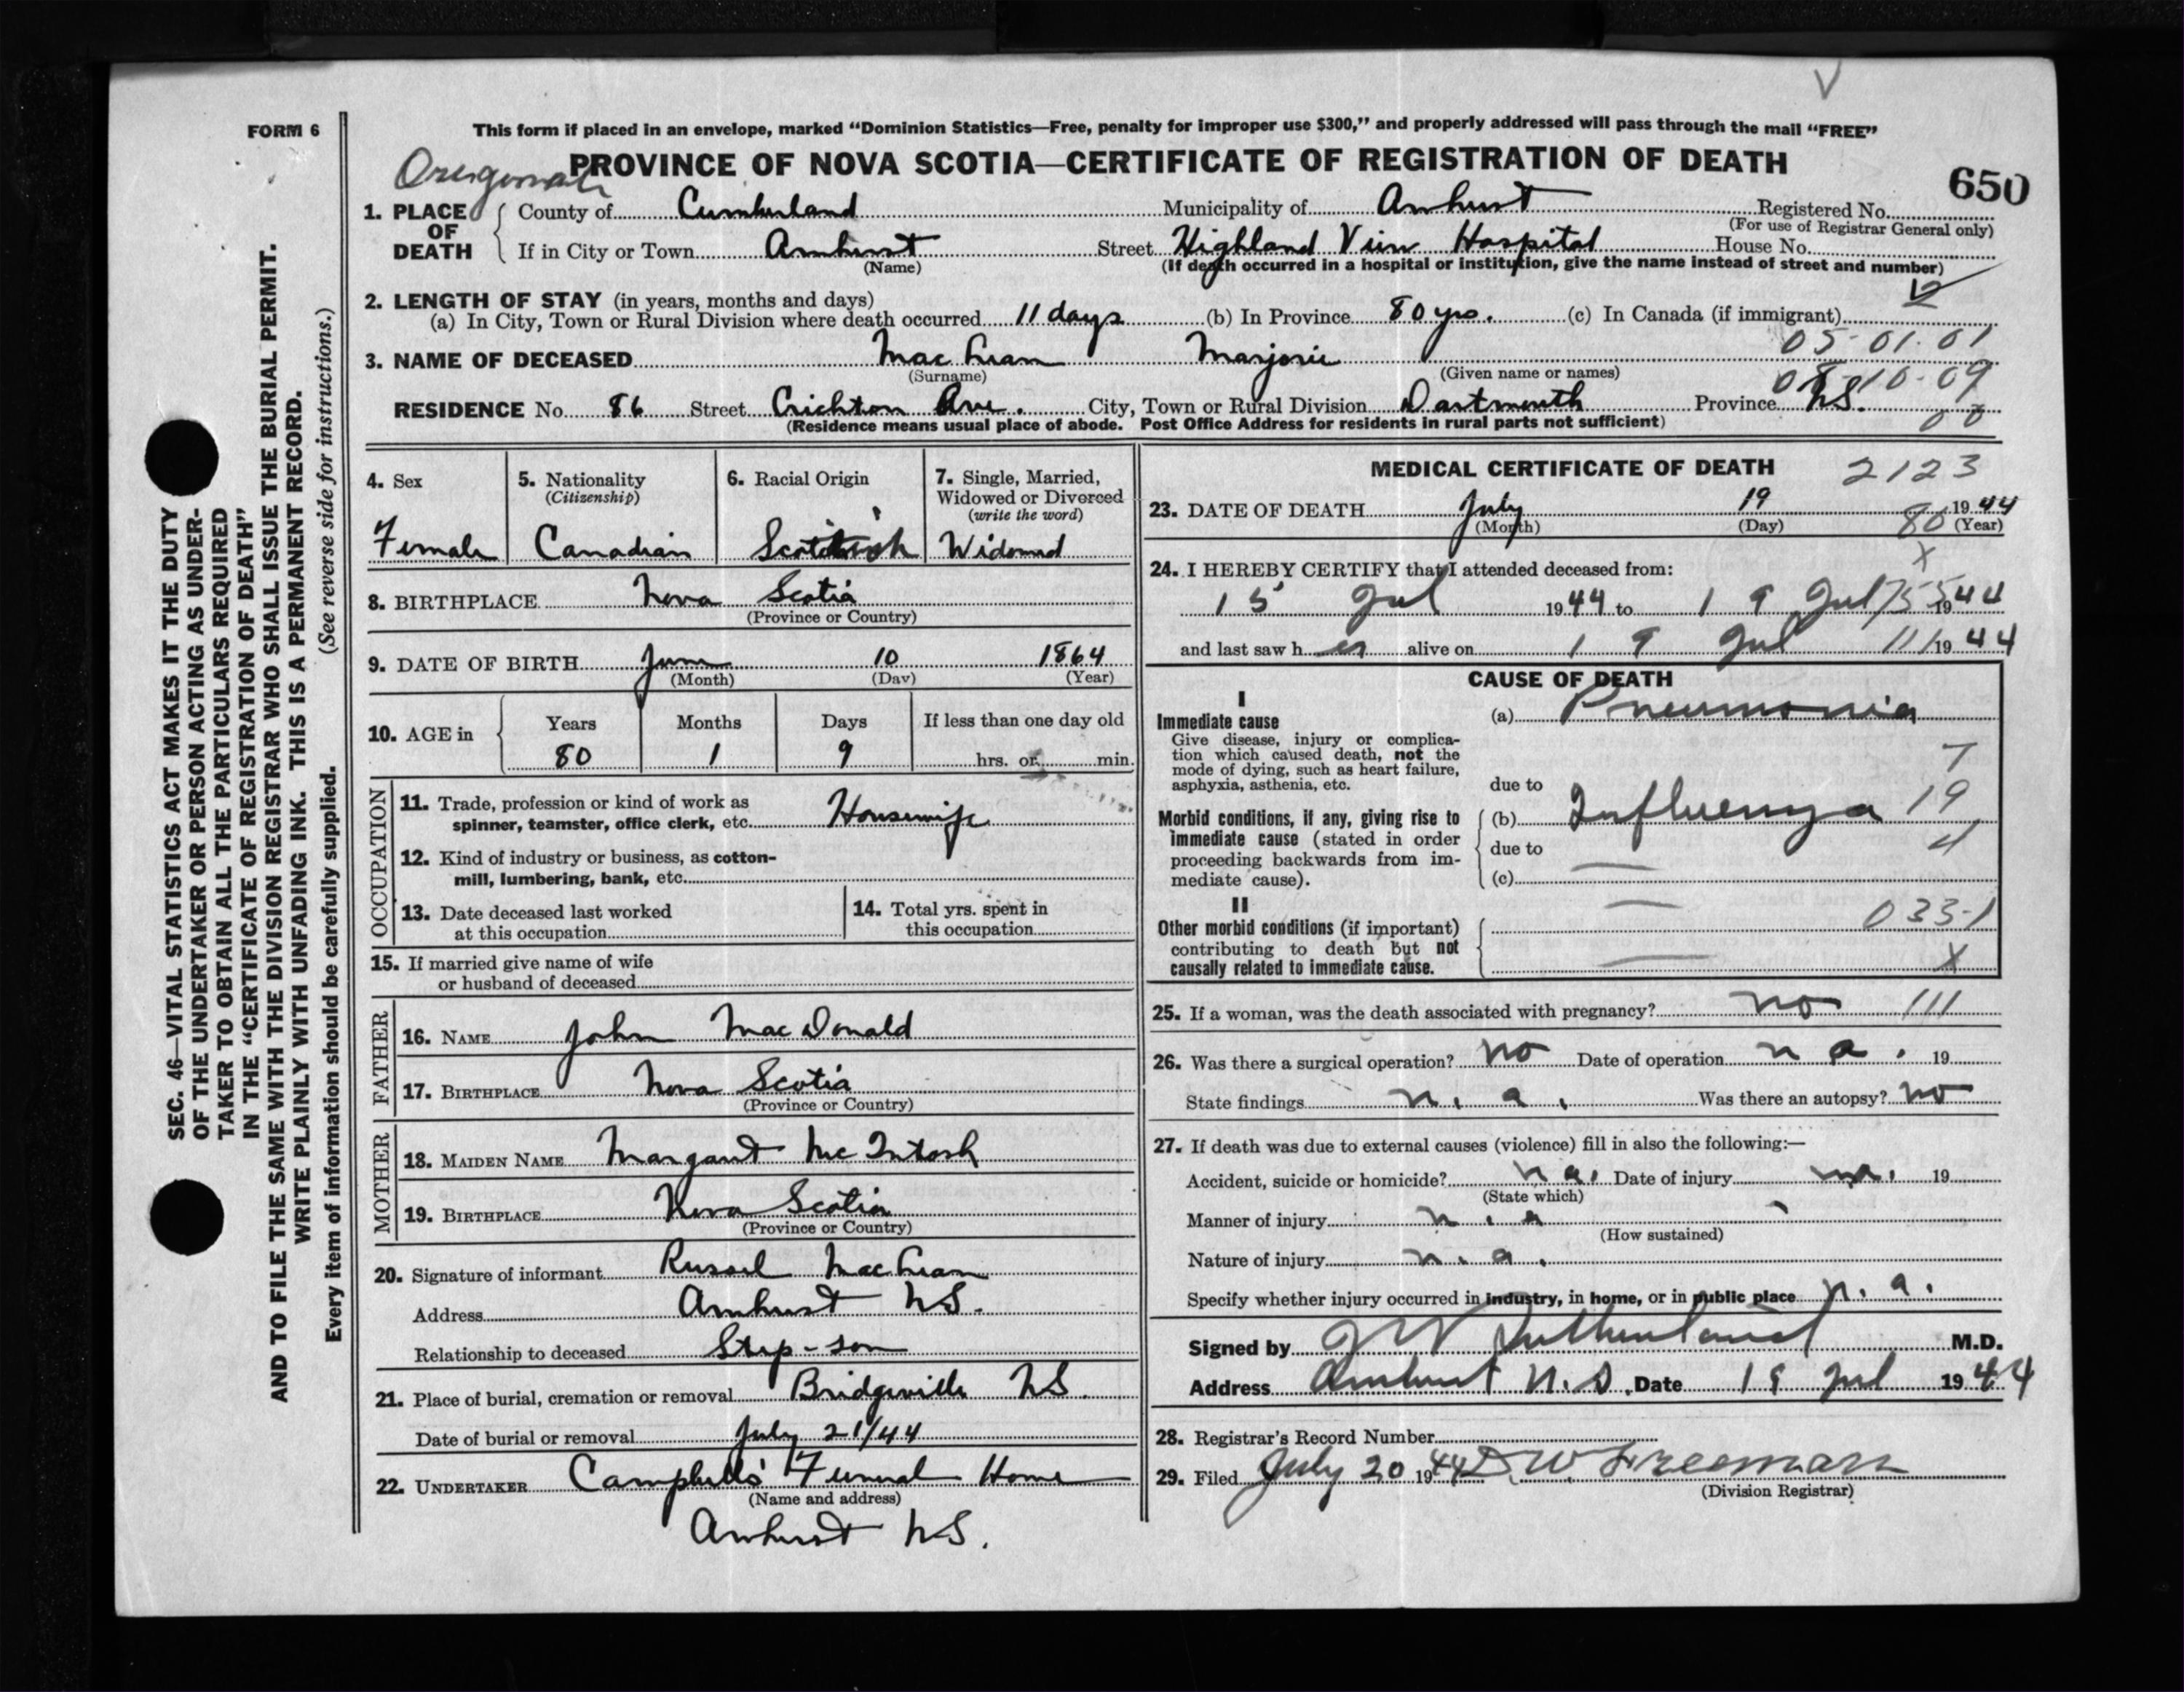 FORM 6
This form if placed in an envelope, marked “Dominion Statistics—Free, penalty for improper use $300,” and properly addressed will pass through the mail “FREE”
PROVINCE OF NOVA SCOTIA—CERTIFICATE OF REGISTRATION OF DEATH
650
1. PLACE OF DEATH County of Cumberland Municipality of Amherst Registered No.
(For use of Registrar General only)
If in City or Town Amherst Street Highland View Hospital House No.
(Name) (If death occurred in a hospital or institution, give the name instead of street and number)
2. LENGTH OF STAY (in years, months and days)
(a) In City, Town or Rural Division where death occurred 11 days (b) In Province 80 yrs. (c) In Canada (if immigrant)
05-01-01
3. NAME OF DECEASED MacLean Marjorie
(Surname) (Given name or names)
10-09
RESIDENCE No. 86 Street Crichton Ave. City, Town or Rural Division Dartmouth Province N.S.
(Residence means usual place of abode. Post Office Address for residents in rural parts not sufficient) 00
4. Sex 5. Nationality (Citizenship) 6. Racial Origin 7. Single, Married, Widowed or Divorced (write the word)
Female Canadian Widowed
8. BIRTHPLACE Nova Scotia
(Province or Country)
9. DATE OF BIRTH June 10 1864
(Month) (Day) (Year)
10. AGE in Years Months Days If less than one day old
80 1 9 hrs. or min.
OCCUPATION
11. Trade, profession or kind of work as
spinner, teamster, office clerk, etc. Housewife
12. Kind of industry or business, as cotton-
mill, lumbering, bank, etc.
13. Date deceased last worked
at this occupation
14. Total yrs. spent in
this occupation
15. If married give name of wife
or husband of deceased
FATHER
16. NAME John MacDonald
17. BIRTHPLACE Nova Scotia
(Province or Country)
MOTHER
18. MAIDEN NAME Margaret McIntosh
19. BIRTHPLACE Nova Scotia
(Province or Country)
20. Signature of informant Russel MacLean
Address Amherst N.S.
Relationship to deceased Step-son
21. Place of burial, cremation or removal Bridgeville N.S.
Date of burial or removal July 21/44
22. UNDERTAKER Campbells' Funeral Home
(Name and address)
Amherst N.S.
MEDICAL CERTIFICATE OF DEATH 2123
23. DATE OF DEATH July 19 1944
(Month) (Day) 80 (Year)
X
24. I HEREBY CERTIFY that I attended deceased from:
15 Jul 1944 to 19 Jul 1944
and last saw her alive on 19 Jul 1944
CAUSE OF DEATH
I
Immediate cause
Give disease, injury or complica-
tion which caused death, not the
mode of dying, such as heart failure,
asphyxia, asthenia, etc.
(a) Pneumonia
7
due to
Morbid conditions, if any, giving rise to
immediate cause (stated in order
proceeding backwards from im-
mediate cause).
(b) Influenza 19
due to
4
(c)
II
Other morbid conditions (if important)
contributing to death but not
causally related to immediate cause.
033-1
X
25. If a woman, was the death associated with pregnancy? no 111
26. Was there a surgical operation? no Date of operation n a. 19
State findings n. a. Was there an autopsy? no
27. If death was due to external causes (violence) fill in also the following:—
Accident, suicide or homicide? na. Date of injury na. 19
(State which)
Manner of injury n. a
(How sustained)
Nature of injury n. a.
Specify whether injury occurred in industry, in home, or in public place n. a.
Signed by Sutherland M.D.
Address Amherst N.S. Date 19 Jul 1944
28. Registrar's Record Number
29. Filed July 20 1944 D W Freeman
(Division Registrar)
SEC. 46—VITAL STATISTICS ACT MAKES IT THE DUTY
OF THE UNDERTAKER OR PERSON ACTING AS UNDER-
TAKER TO OBTAIN ALL THE PARTICULARS REQUIRED
IN THE “CERTIFICATE OF REGISTRATION OF DEATH”
AND TO FILE THE SAME WITH THE DIVISION REGISTRAR WHO SHALL ISSUE THE BURIAL PERMIT.
WRITE PLAINLY WITH UNFADING INK. THIS IS A PERMANENT RECORD.
Every item of information should be carefully supplied. (See reverse side for instructions.)